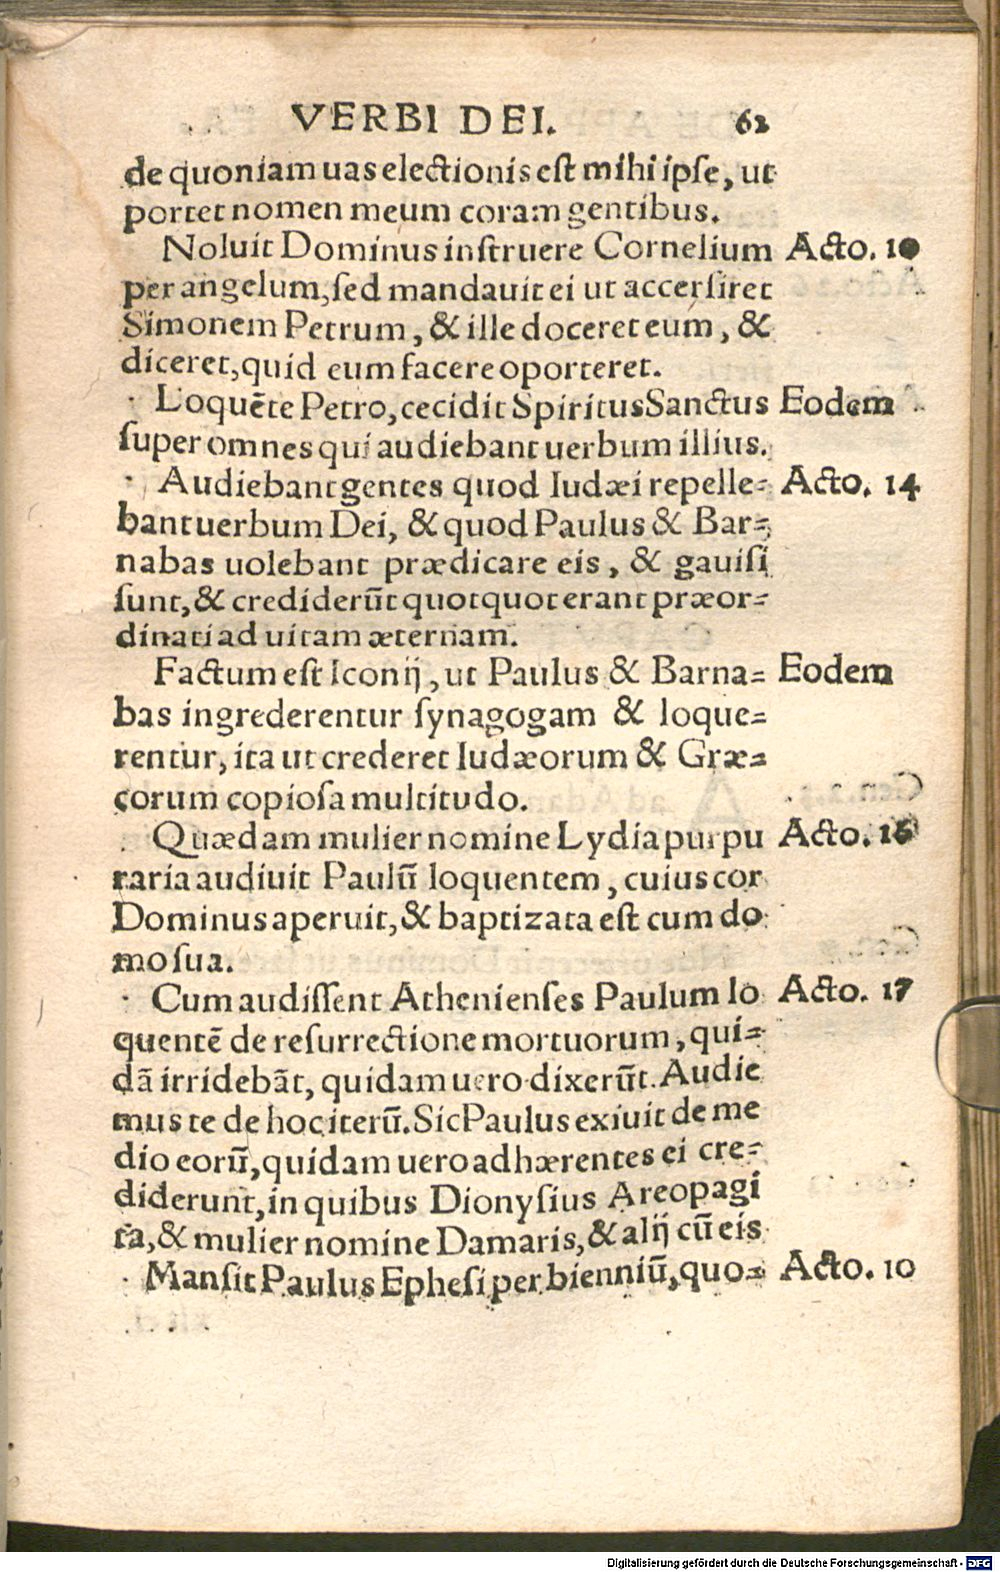 VERBI DEI. 62
de quoniam uas electionis est mihi ipse, ut
portet nomen meum coram gentibus.
Noluit Dominus instruere Cornelium Acto. 10
per angelum, sed mandauit ei ut accersiret
Simonem Petrum, & ille doceret eum, &
diceret, quid eum facere oporteret.
Loquẽte Petro, cecidit Spiritus Sanctus Eodem
super omnes qui audiebant uerbum illius.
Audiebant gentes quod Iudæi repelle= Acto. 14
bant uerbum Dei, & quod Paulus & Bar=
nabas uolebant prædicare eis, & gauisi
sunt, & crediderũt quotquot erant præor=
dinati ad uitam æternam.
Factum est Iconij, ut Paulus & Barna= Eodem
bas ingrederentur synagogam & loque=
rentur, ita ut crederet Iudæorum & Græ=
corum copiosa multitudo.
Quædam mulier nomine Lydia purpu Acto. 16
raria audiuit Paulũ loquentem, cuius cor
Dominus aperuit, & baptizata est cum do
mo sua.
Cum audissent Athenienses Paulum lo Acto. 17
quentẽ de resurrectione mortuorum, qui=
dã irridebãt, quidam uero dixerũt. Audie
mus te de hoc iterũ. Sic Paulus exiuit de me
dio eorũ, quidam uero adhærentes ei cre=
diderunt, in quibus Dionysius Areopagi
ta, & mulier nomine Damaris, & alij cũ eis
Mansit Paulus Ephesi per bienniũ, quo= Acto. 10
Digitalisierung gefördert durch die Deutsche Forschungsgemeinschaft - DFG